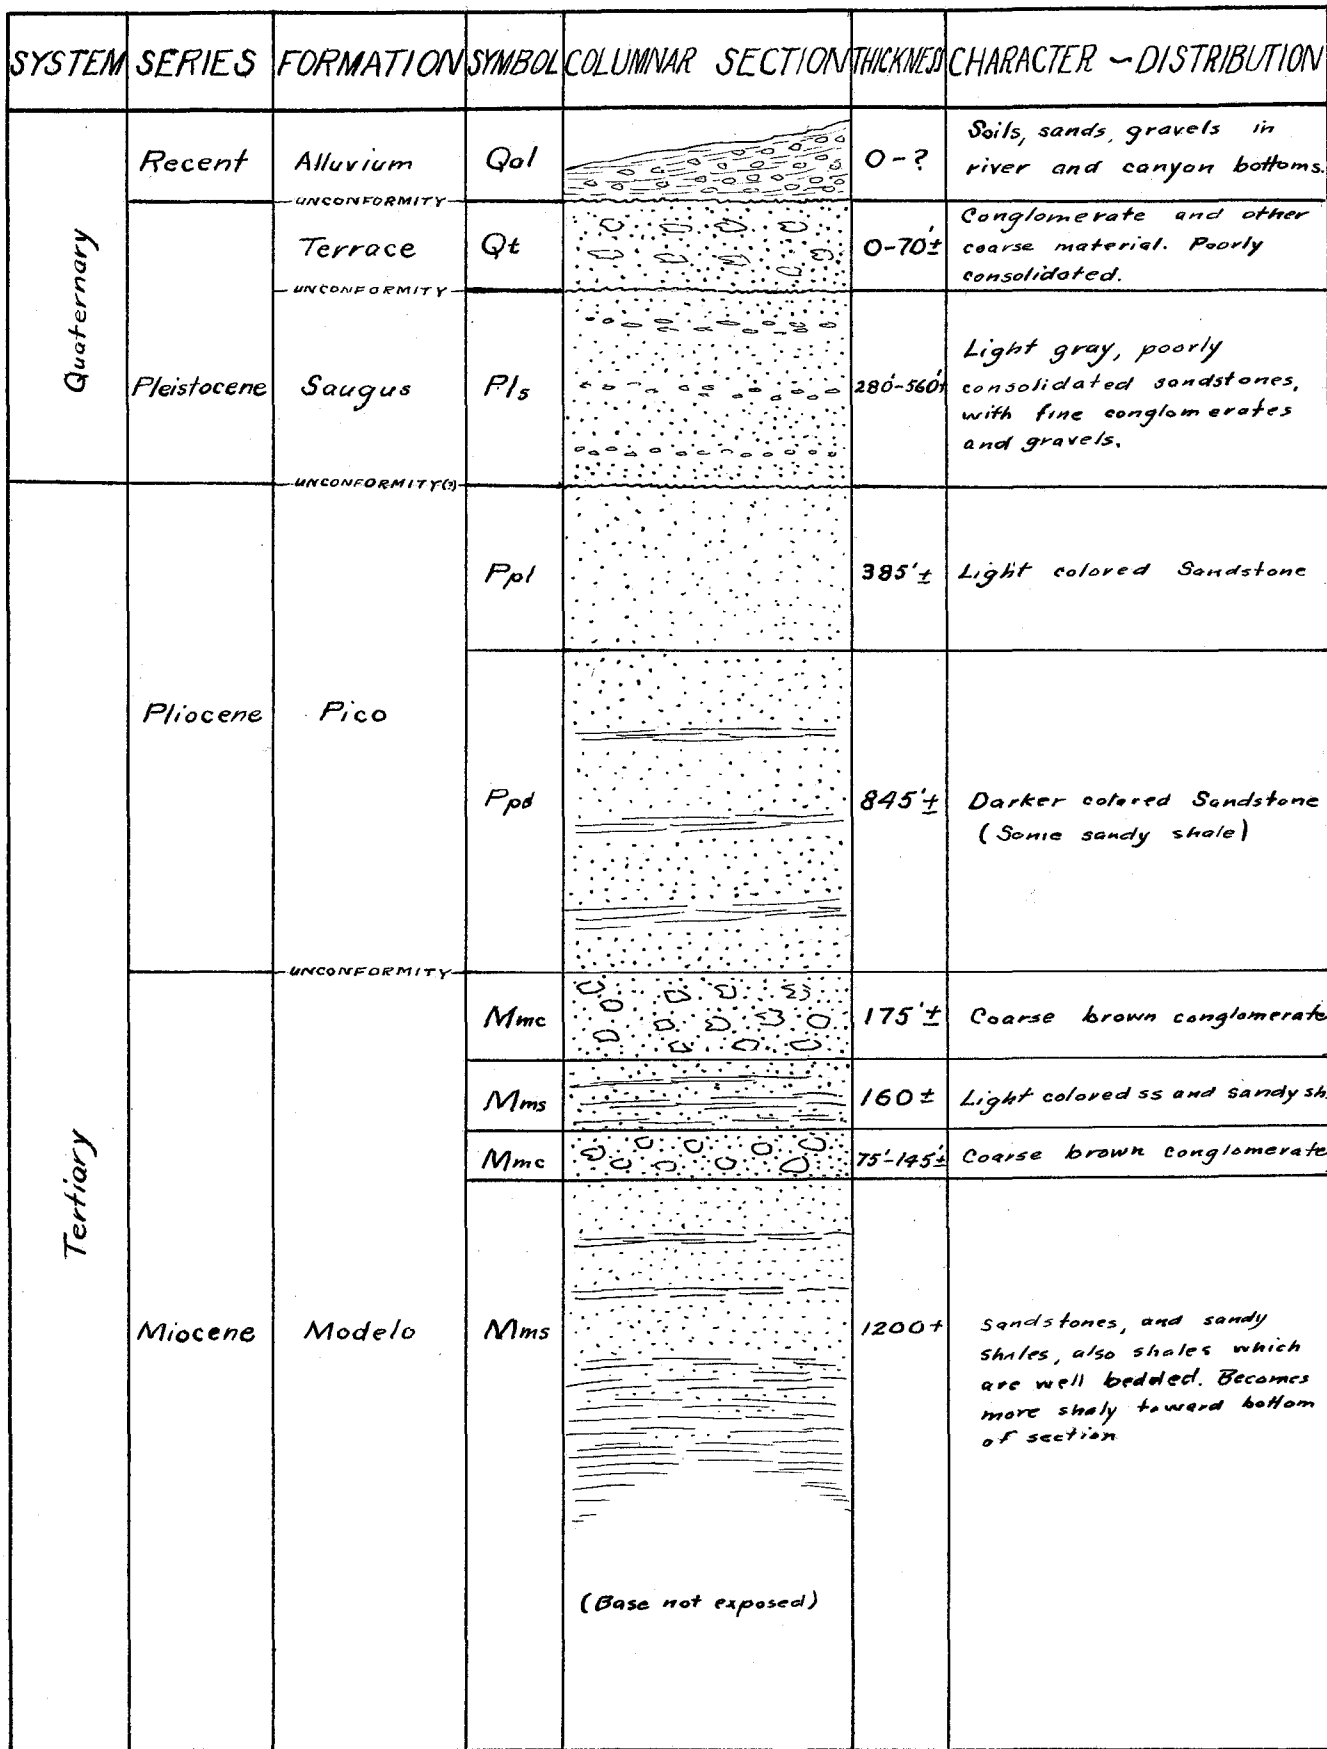 SYSTEM SERIES FORMATION SYMBOL COLUMNAR SECTION THICKNESS CHARACTER ~ DISTRIBUTION
Quaternary
Recent Alluvium Qal 0-? Soils, sands, gravels in
river and canyon bottoms.
UNCONFORMITY
Terrace Qt 0-70'± Conglomerate and other
coarse material. Poorly
consolidated.
UNCONFORMITY
Pleistocene Saugus Pls 280'-560'± Light gray, poorly
consolidated sandstones,
with fine conglomerates
and gravels.
UNCONFORMITY(?)
Tertiary
Pliocene Pico
Ppl 385'± Light colored Sandstone
Ppd 845'± Darker colored Sandstone
(Some sandy shale)
UNCONFORMITY
Mmc 175'± Coarse brown conglomerate
Mms 160± Light colored ss and sandy sh.
Mmc 75'-145'± Coarse brown conglomerate
Miocene Modelo Mms 1200+ Sandstones, and sandy
shales, also shales which
are well bedded. Becomes
more shaly toward bottom
of section
(Base not exposed)